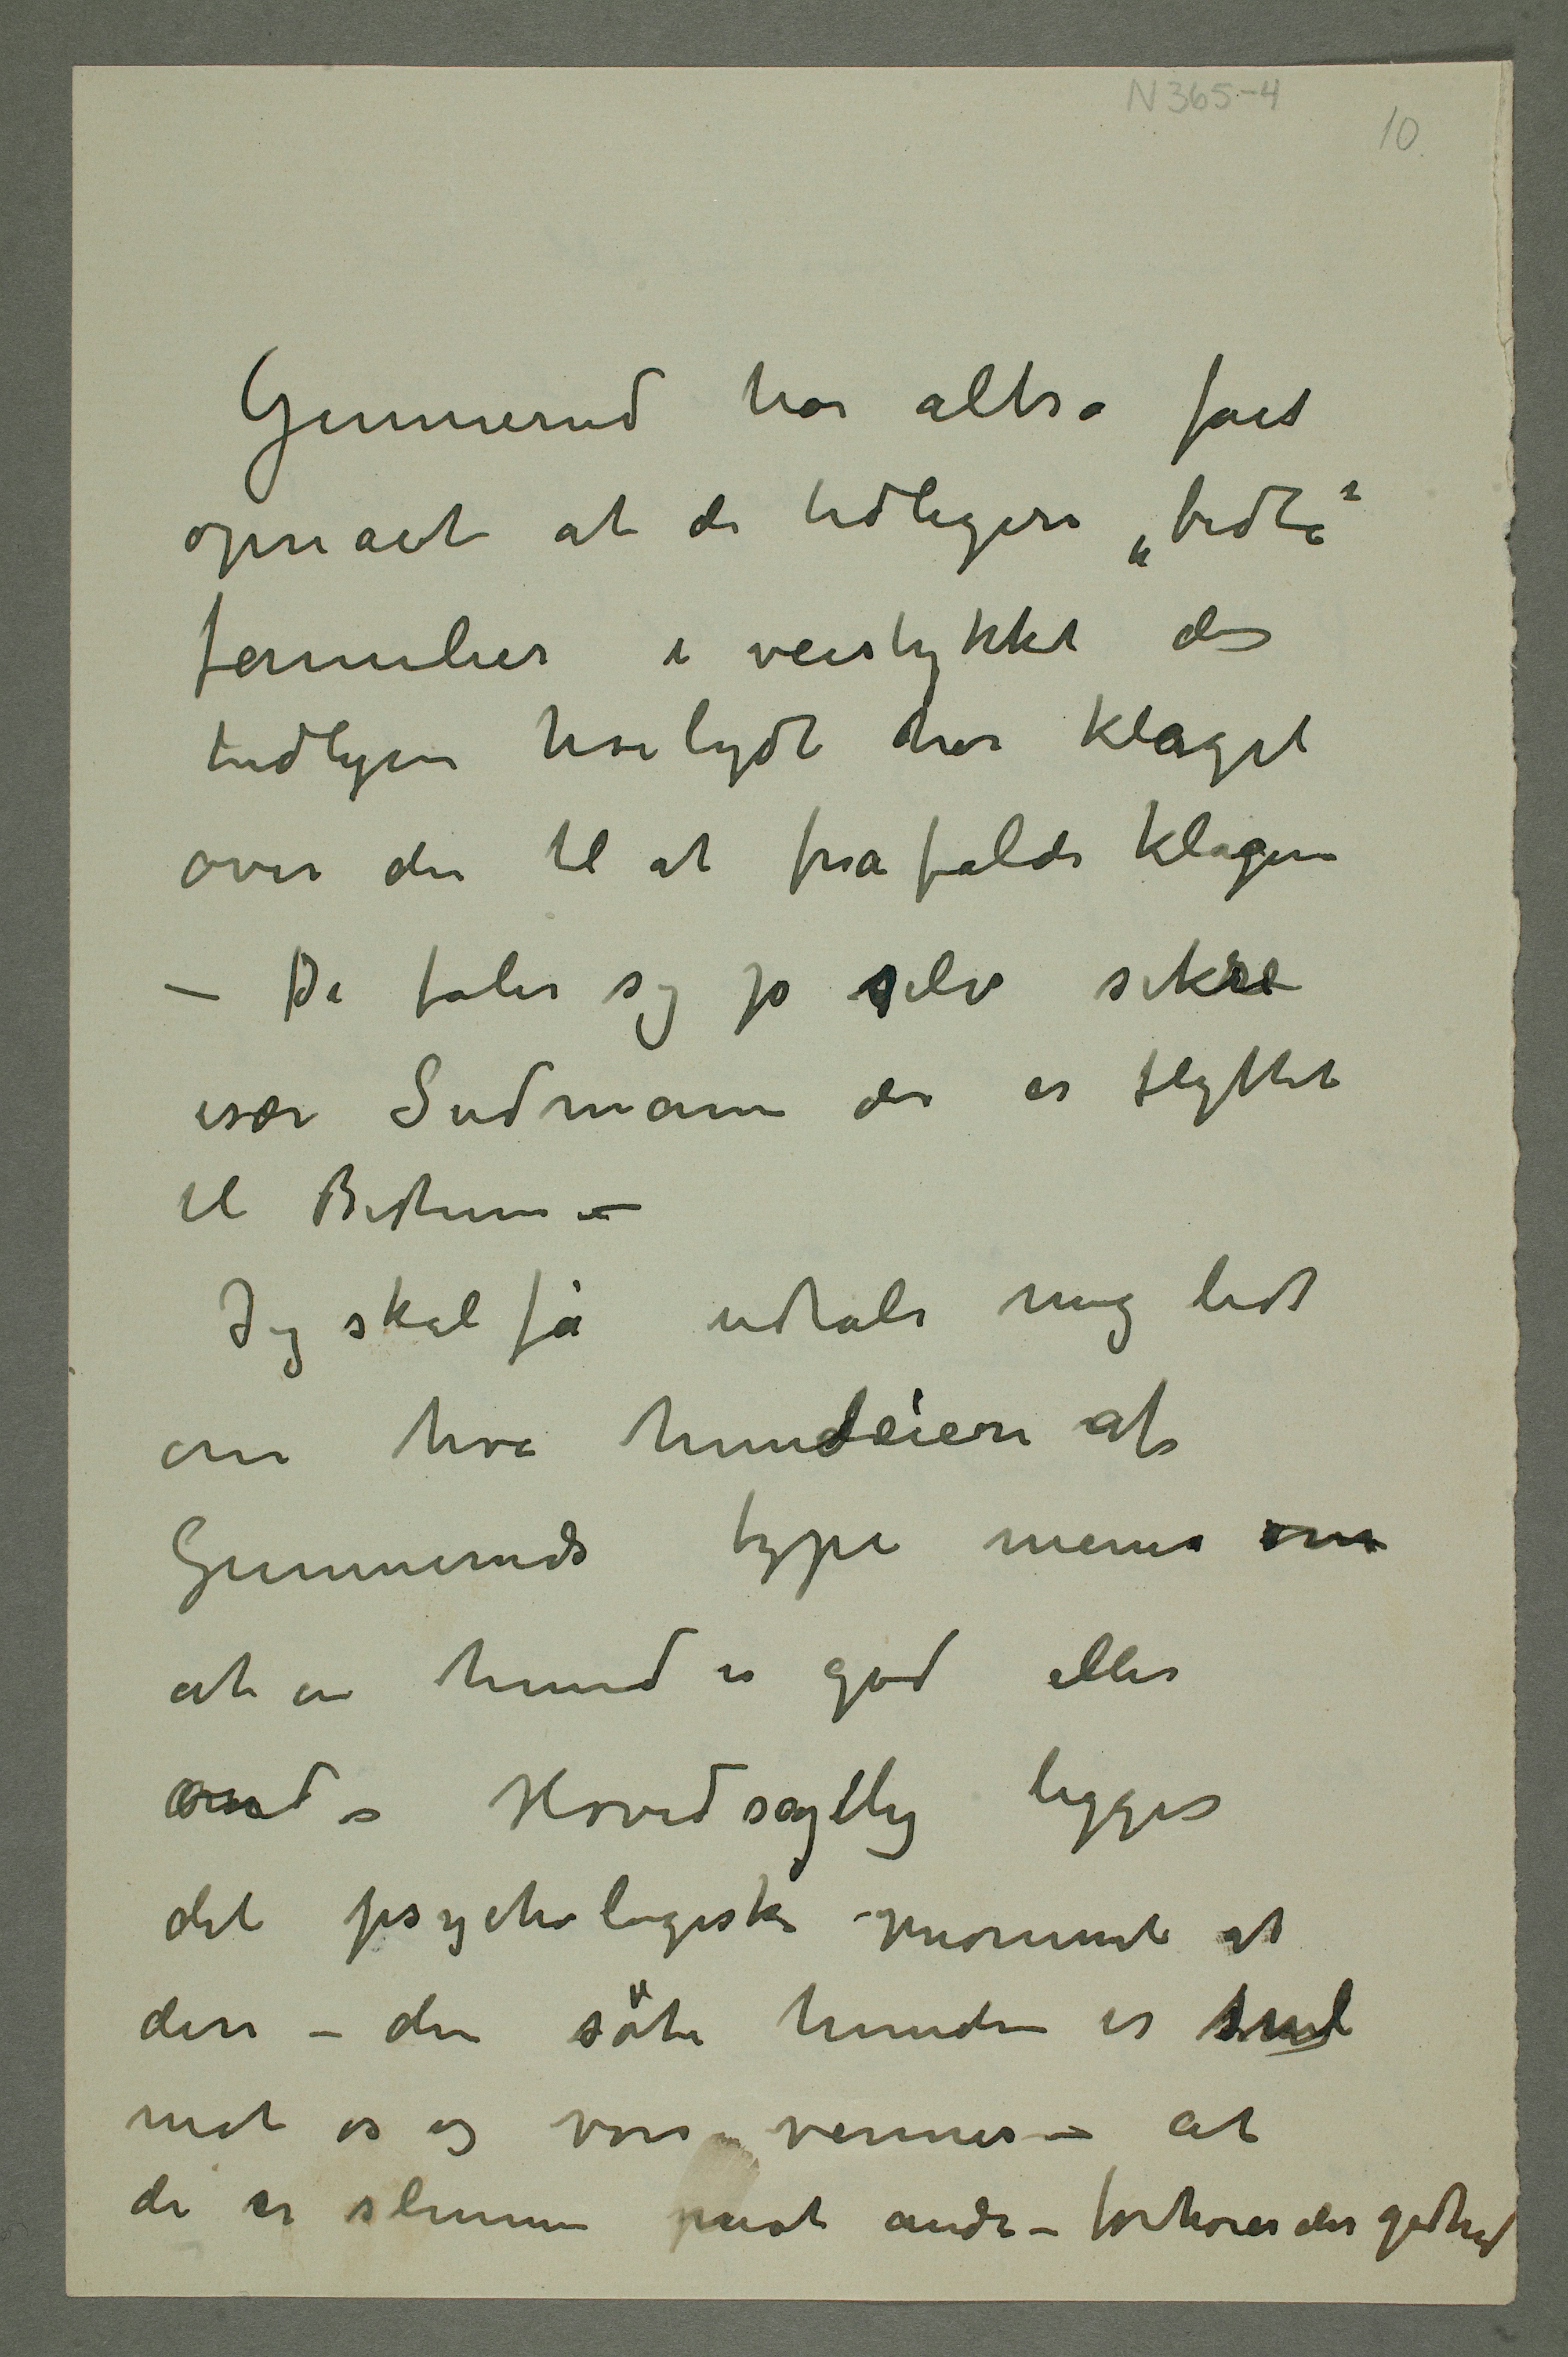 N 365-4
10
Gunnerud har altså fået
opnået at de tidligere „bidte“
familier i veistykket der
tidligere höilydt har klaget
over den til at frafalde klagen
– De føler sig jo selv sikre
især Sudmann der er flyttet
til Bestum –
Jeg skal få udtale mig lidt
om hva hundeiere af
Gunneruds type mener om
at en hund er god eller
ond – Hovedsagelig ligger
det psychologiske moment at
den – den söte hunden er snil
mot os og vore venner – at
de er slemme mot andre – forhöier des godhed